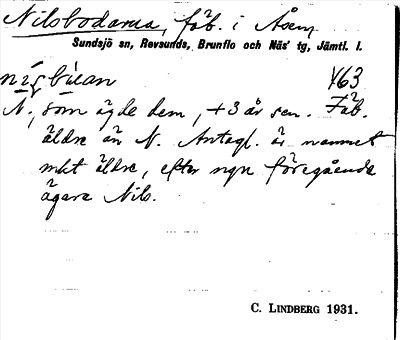 Nilsbodarna, fäb. i Åsen,
Sundsjö sn, Revsunds, Brunflo och Näs tg, Jämtl. l.
463
N., som ägde dem, + 3 år sen. Fäb.
äldre än N. Antagl. är namnet
mkt äldre, efter ngn föregående
ägare Nils.
C. LINDBERG 1931.